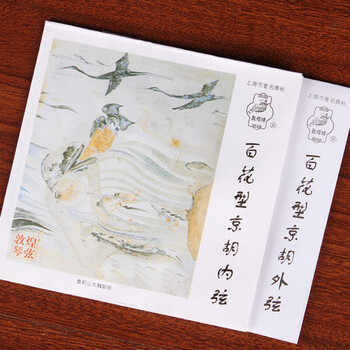 上海市著名商标
敦煌牌
百花型京胡内弦
敦煌
琴弦
上海市著名商标
敦煌牌
百花型京胡外弦